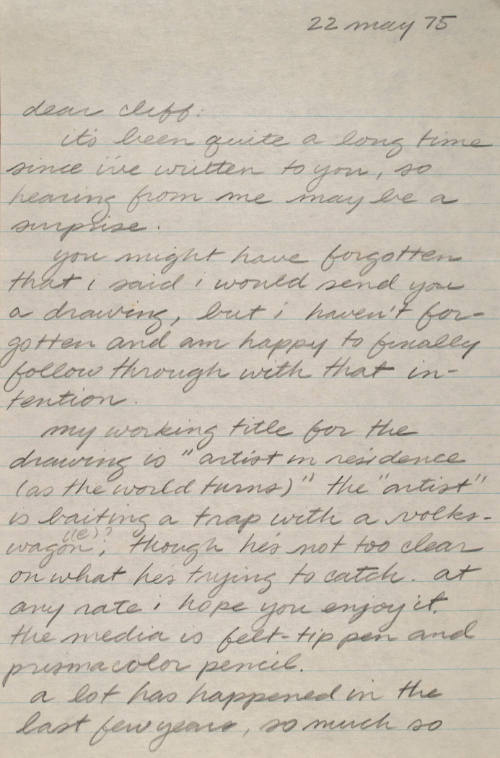 22 may 75
dear cliff:
it's been quite a long time
since i've written to you, so
hearing from me may be a
surprise.
you might have forgotten
that i said i would send you
a drawing, but i haven't for-
gotten and am happy to finally
follow through with that in-
tention.
my working title for the
drawing is "artist in residence
(as the world turns)" the "artist"
is baiting a trap with a volks-
((e)?
wagon, though he's not too clear
on what he's trying to catch. at
any rate i hope you enjoy it.
the media is felt-tip pen and
prismacolor pencil.
a lot has happened in the
last few years, so much so